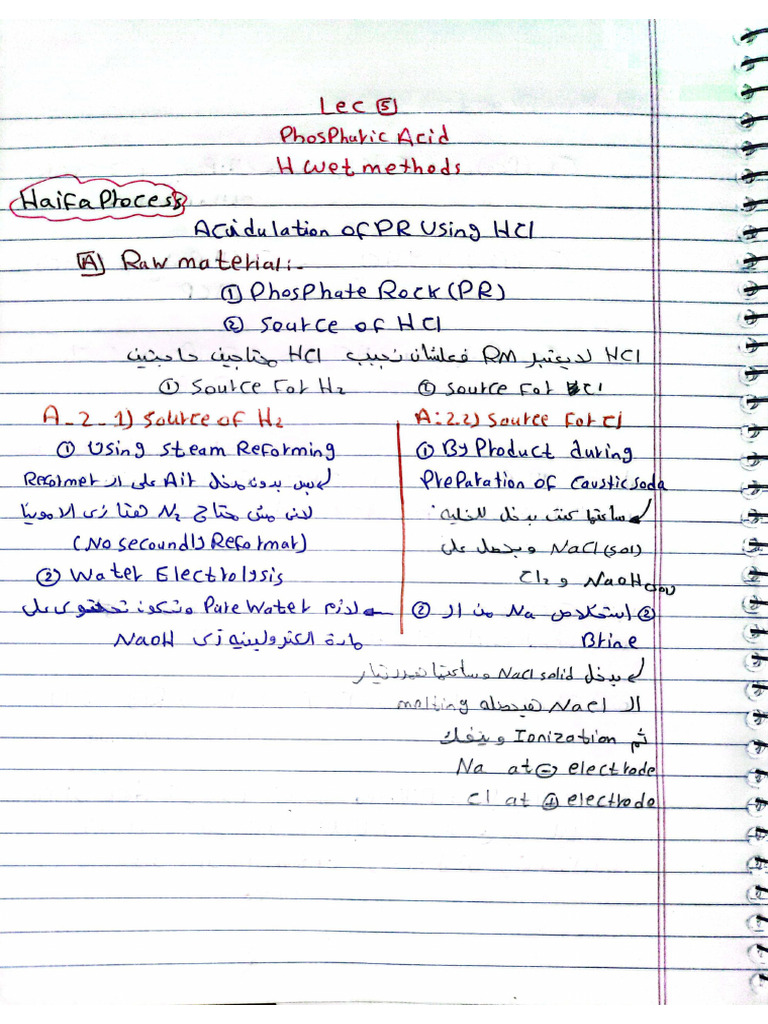 Lec 5
Phosphoric Acid
H wet methods
Haifa Process
Acidulation of PR Using HCl
A Raw material:-
① Phosphate Rock (PR)
② Source of HCl
HCl لا يعتبر RM فعلشان نجيب HCl محتاجين حاجتين
① Source For H₂
② Source For Cl
A-2-1) Source of H₂
① Using Steam Reforming
بس بدون مدخل Air على ال Reformer
لانى مش محتاج N₂ هنا زى الامونيا
(No secoundly Reformar)
② Water Electrolysis
لازم Pure Water وتكون تحتوى على
مادة الكتروليتيه زى NaOH
A:2.2) Source For Cl
① By Product during
Preparation of Caustic soda
ساعتها كنت بدخل للخليه:
NaCl (sol) وبحصل على
NaOH (sol) و Cl₂
② استخلاص Na من ال
Brine
بدخل NaCl solid وساعتها نمرر تيار
ال NaCl هيحصله melting
ثم Ionization وينفك
Na at ⊖ electrode
Cl at ⊕ electrode